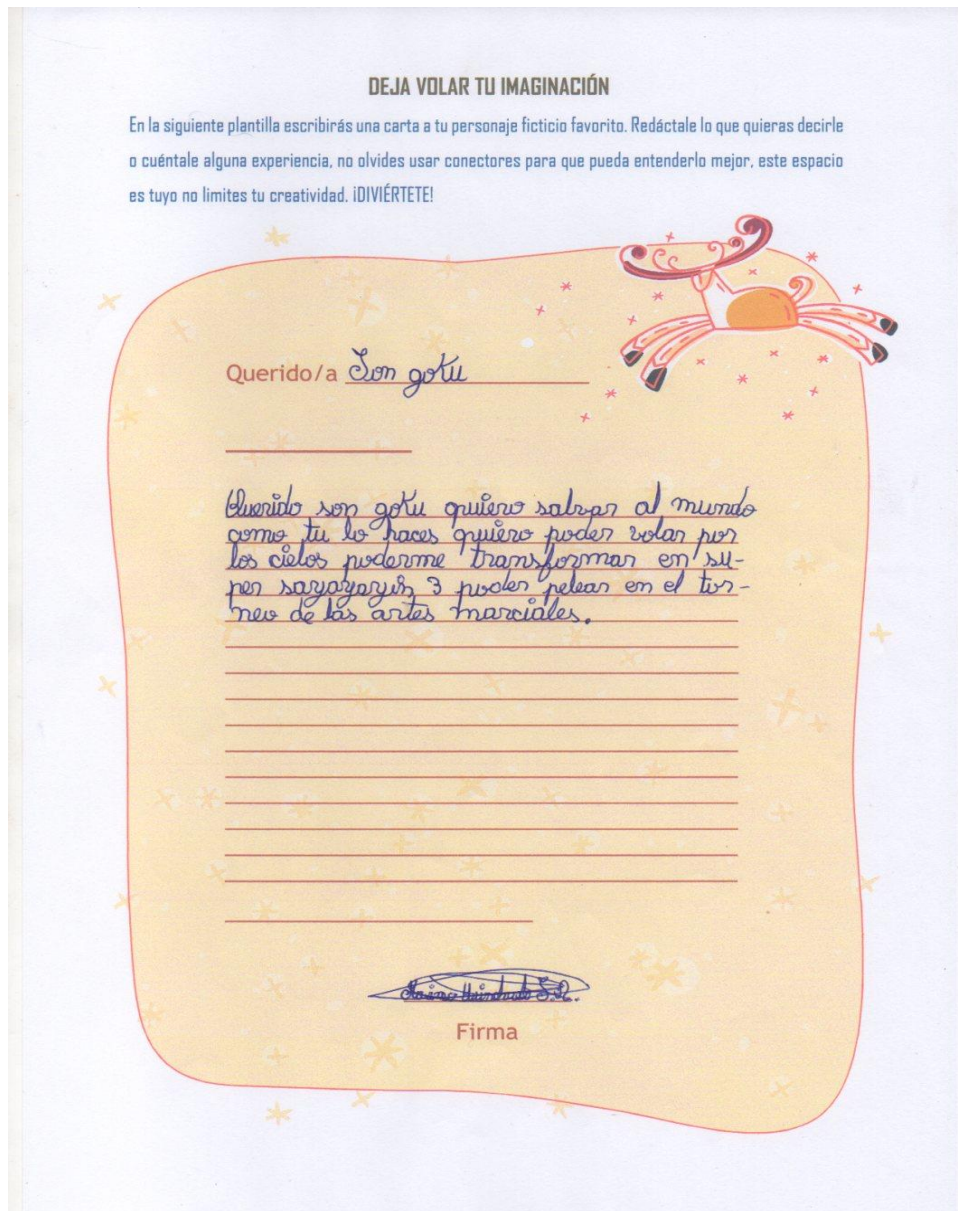 DEJA VOLAR TU IMAGINACIÓN
En la siguiente plantilla escribirás una carta a tu personaje ficticio favorito. Redáctale lo que quieras decirle
o cuéntale alguna experiencia, no olvides usar conectores para que pueda entenderlo mejor, este espacio
es tuyo no limites tu creatividad. ¡DIVIÉRTETE!
Querido/a Son goku
Querido son goku quiero salvar al mundo
como tu lo haces quiero poder volar por
los cielos poderme transformar en su-
per sayayayin 3 poder pelear en el tor-
neo de las artes marciales.
Firma